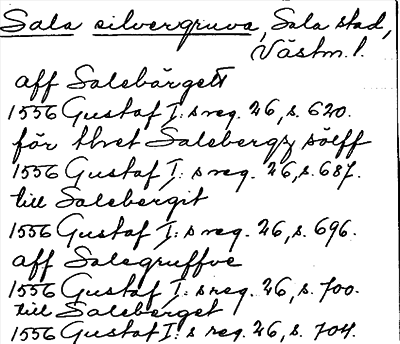 Sala silvergruva, Sala stad,
Västm. l.
aff Salebärgett
1556 Gustaf I: s reg. 26, s. 620.
för thet Salebergz sölff
1556 Gustaf I: s reg. 26, s. 687.
till Salebergit
1556 Gustaf I: s reg. 26, s. 696.
aff Salegruffve
1556 Gustaf I: s reg. 26, s. 700.
till Saleberget
1556 Gustaf I: s reg. 26, s. 704.